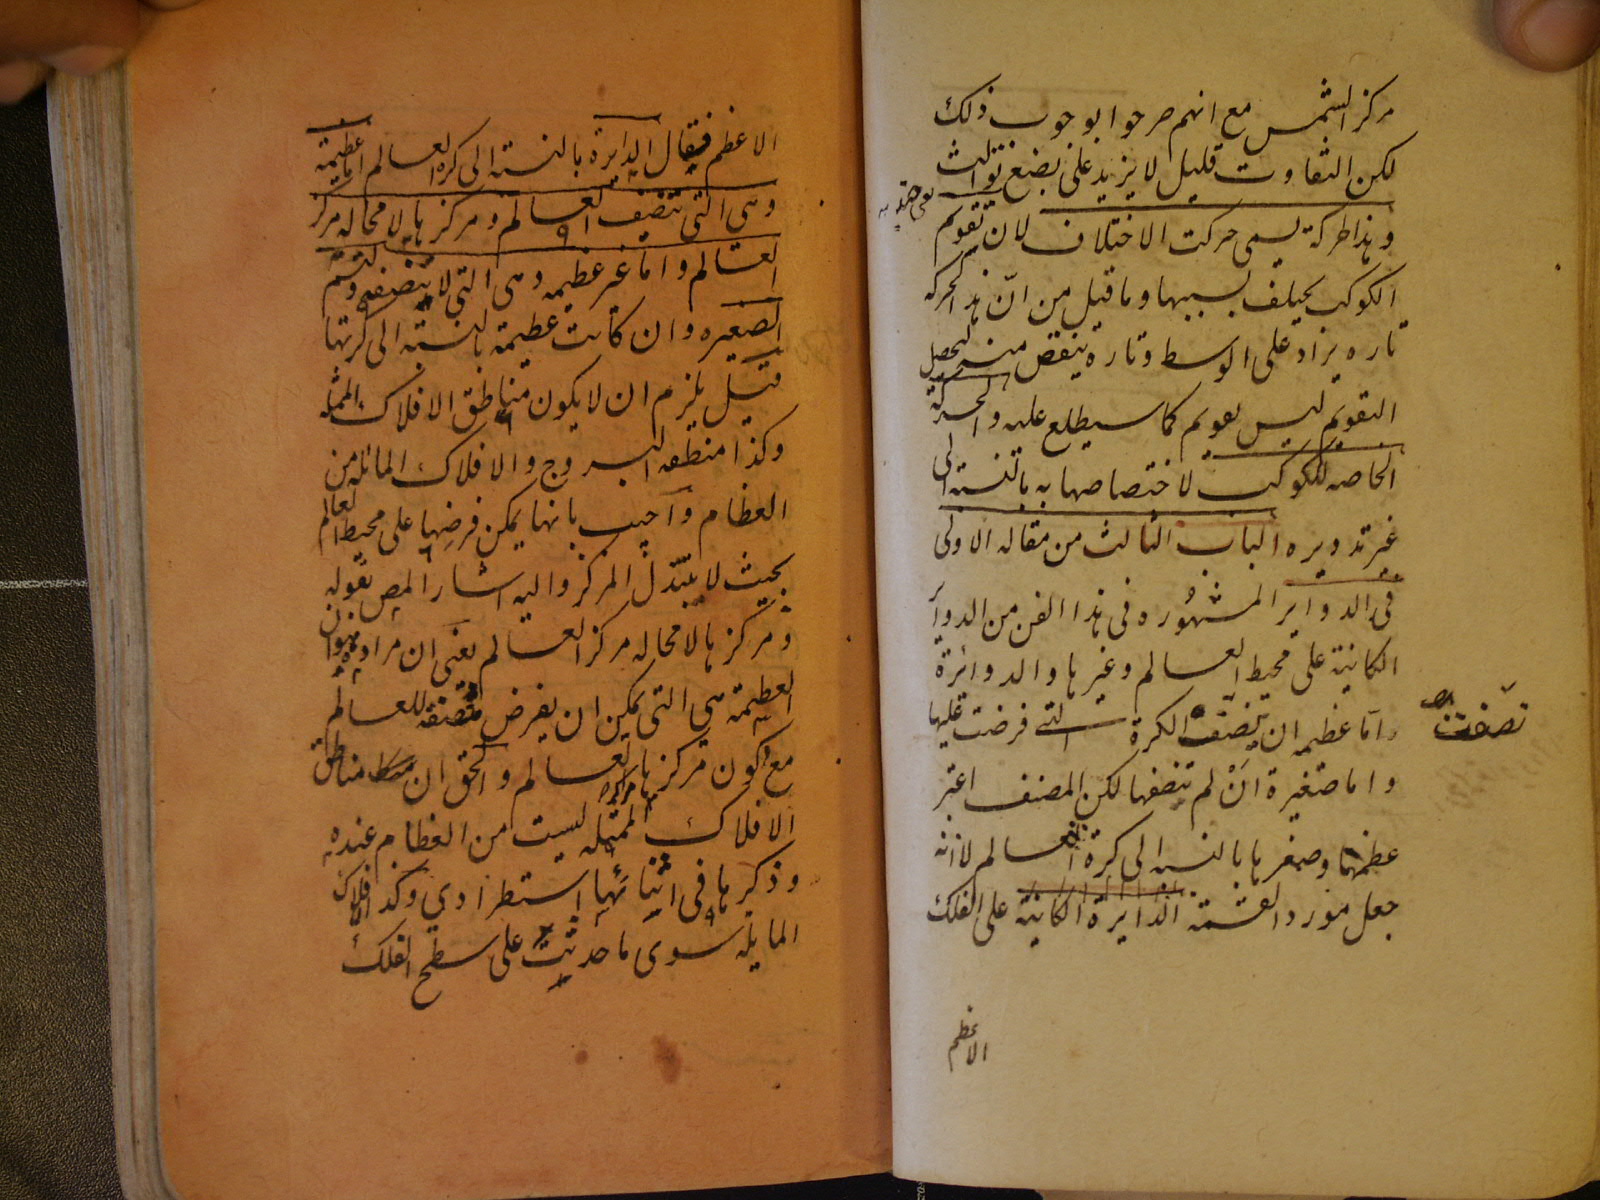 مركز الشمس مع انهم صرحوا بوجوب ذلك
لكن التفاوت قليل لا يزيد على بضع ثوالث
وهذا حركة يسمى حركت الاختلاف لان تقويم
الكوكب يختلف بسببها وما قيل من انّ هذه الحركه
تاره يزاد على الوسط وتاره ينقص منه ليحصل
التقويم ليس بقويم كما سيطلع عليه والحركة
الخاصه للكوكب لاختصاصها به بالنسبة الى
غير تدويره الباب الثالث من مقاله الاولى
فى الدواير المشهُوره فى هذا الفن من الدواير
الكائنة على محيط العالم وغيرها والدوائرة
اما عظيمه ان ينصّف الكرة التى فرضت عليها
نصفت
صح
واما صغيرة انْ لم تنصفها لكن المصنف اعتبر
عظمها وصغرها بالنسبه الى كرة العالم لانه
جعل مورد القسمة الدايرة الكائنة على الفلك
الاعظم
الاعظم فقال الدايرة بالنسبة الى كرة العالم اما عظيمة
وهى التى تنصف العالم ومركزها لا محاله مركز
العالم واما غير عظيمه وهى التى لا تنصفه وتسمّ
الصغيره وان كانت عظيمة بالنسبة الى كرتها
قيل يلزم ان لا يكون مناطق الافلاك الممثله
وكذا منطقه البروج والافلاك المائله من
العظام واجيب بانها يمكن فرضها على محيط العالم
بحيث لا يتبدّل المركز واليه اشار المص بقوله
ومركزها لا محاله مركز العالم يعنى ان مراده ان
العظيمة هى التى يمكن ان يفرض منصفة للعالم
مع كون مركزها مركز العالم والحق ان مناطق
الافلاك الممثله ليست من العظام عنده
وذكرها فى اثنائها استطرادي وكذا افلاك
المايله سوى ما حدثت على سطح الفلك